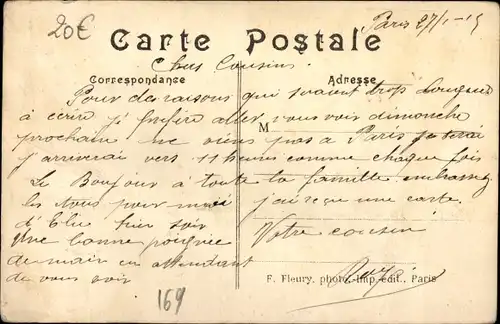 20€
Paris 27/1-15
Carte Postale
Chers Cousins
Correspondance
Adresse
Pour des raisons qui seraient trop longues
à écrire je préfère aller vous voir dimanche
M
prochain ne viens pas à Paris
j'arriverai vers 11 heures comme chaque fois
Le Bonjour à toute la famille embrassez
les tous pour moi j'ai reçu une carte
d'Elie hier soir Votre cousin
Une bonne poignée
de main en attendant
de vous voir
F. Fleury, phot.-Imp. édit., Paris
169